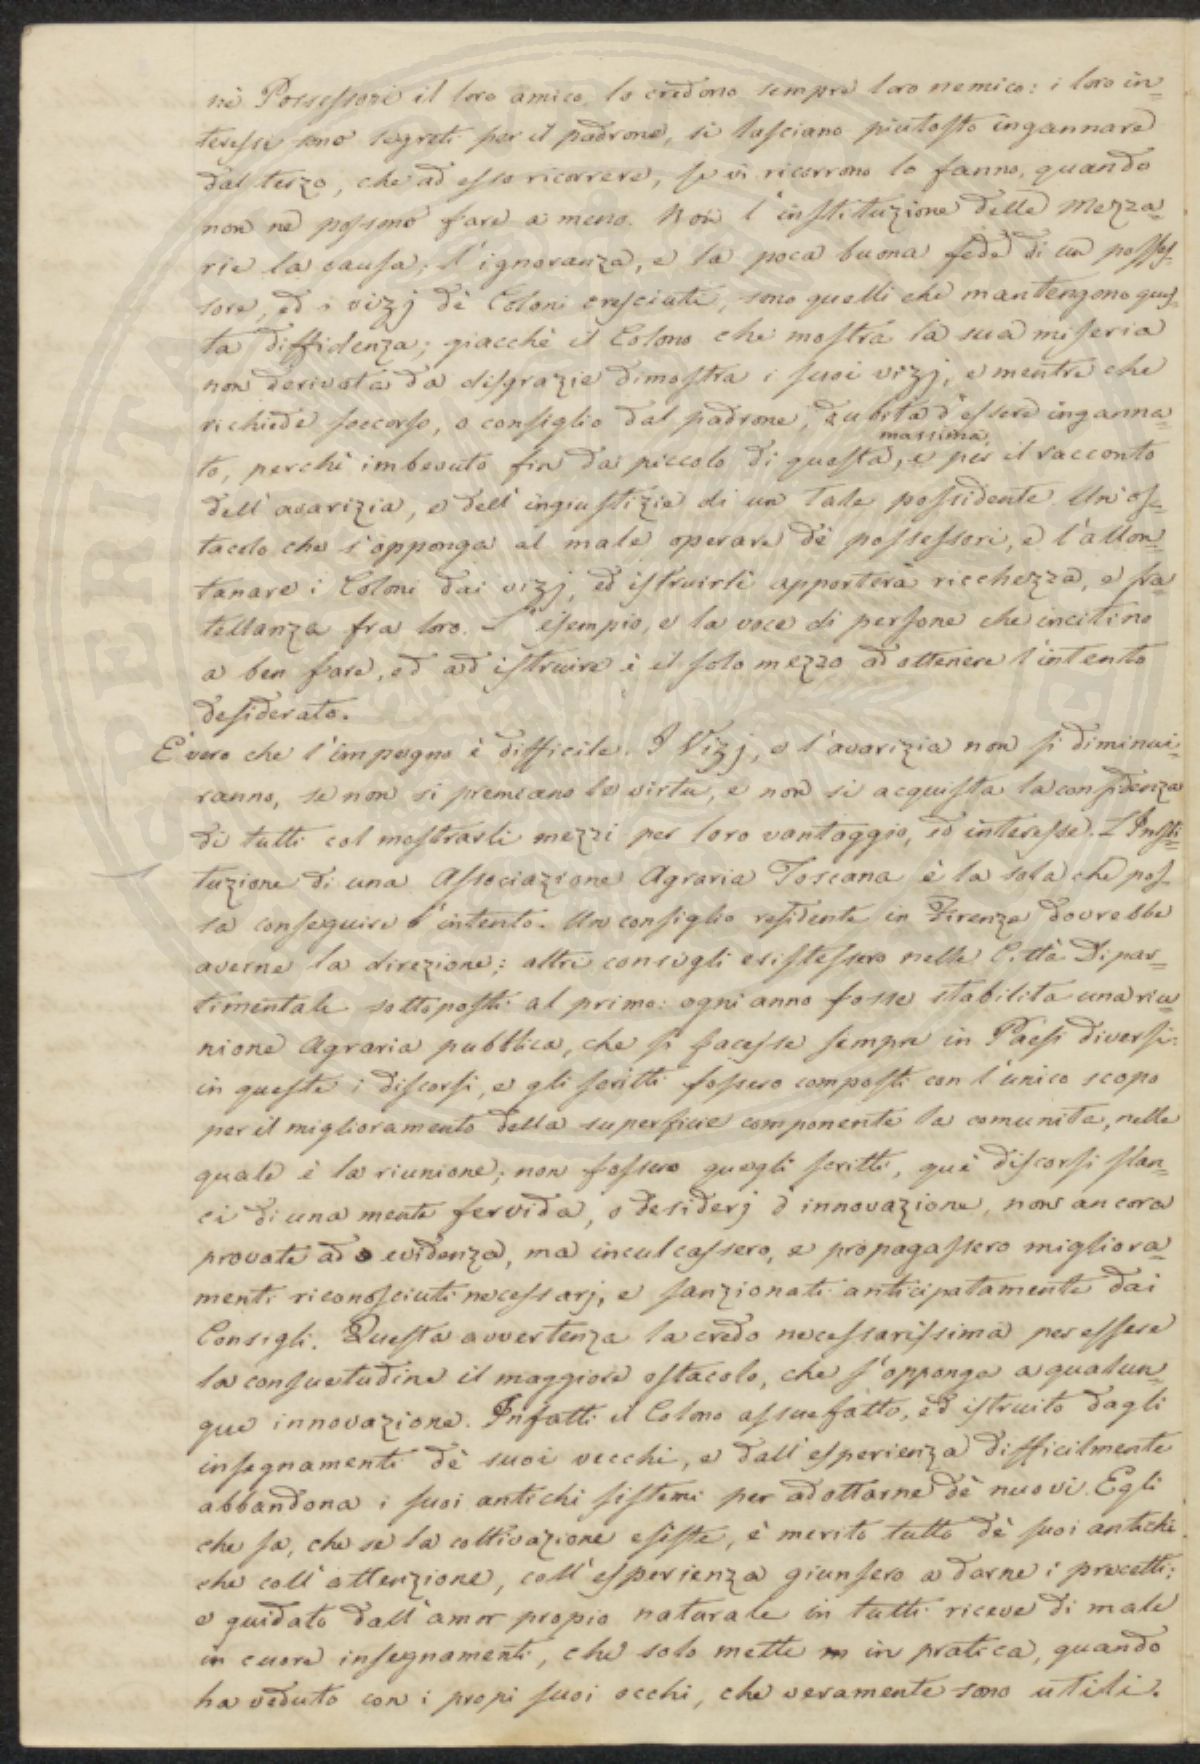 nè Possessori il loro amico, lo credono sempre loro nemico: i loro in=
teressi sono segreti per il padrone, si lasciano piutosto ingannare
dal terzo, che ad esso ricorrere, se vi ricorrono lo fanno, quando
non ne possono fare a meno. Non l'instituzione delle Mezza=
rie la causa; l'ignoranza, e la poca buona fede di un posses=
sore, ed i vizj dè Coloni cresciute, sono quelli che mantengono ques=
ta diffidenza; giacchè il Colono che mostra la sua miseria
non derivata da disgrazie dimostra i suoi vizj, e mentre che
richiede soccorso, o consiglio dal padrone, dubita d'essere inganna=
to, perchè imbevuto fin da piccolo di questa massima, e per il racconto
dell'avarizia, e dell'ingiustizie di un tale possidente. Un os=
tacolo che s'opponga al male operare dè possessori, e l'allon=
tanare i Coloni dai vizj, ed istruirli apporterà ricchezza, e fra
tellanza fra loro. L'esempio, e la voce di persone che incitino
a ben fare, ed ad istruire è il solo mezzo ad ottenere l'intento
desiderato.
E' vero che l'impegno è difficile. I Vizj, e l'avarizia non si diminui=
ranno, se non si premeano le virtù, e non si acquista la confidenza
di tutti col mostrarli mezzi per loro vantaggio, ed interesse. L'Insti=
tuzione di una Associazione Agraria Toscana è la sola che pos=
sa conseguire l'intento. Un consiglio residente in Firenze dovrebbe
averne la direzione; altri consigli esistessero nelle Città Dipar=
timentale sottoposti al primo: ogni anno fosse stabilita una riu
nione Agraria pubblica, che si facesse sempre in Paesi diversi:
in queste i discorsi, e gli scritti fossero composti con l'unico scopo
per il miglioramento della superficie componente la comunità, nella
quale è la riunione; non fossero quegli scritti, què discorsi slan=
ci di una mente fervida, o desiderj d'innovazione, non ancora
provate ad evidenza, ma inculcassero, e propagassero migliora=
menti riconosciuti necessarj, e sanzionati anticipatamente dai
Consigli. Questa avvertenza la credo necessarissima per essere
la consuetudine il maggiore ostacolo, che s'opponga a qualun=
que innovazione. Infatti il Colono assuefatto, ed istruito dagli
insegnamenti dè suoi vecchi, e dall'esperienza difficilmente
abbandona i suoi antichi sistemi per adottarne dè nuovi. Egli
che sa, che se la coltivazione esiste, è merito tutto dè suoi antichi
che coll'attenzione, coll'esperienza giunsero a darne i precetti;
e guidato dall'amor propio naturale in tutti riceve di male
in cuore insegnamenti, che solo mette in pratica, quando
ha veduto con i propi suoi occhi, che veramente sono utili.